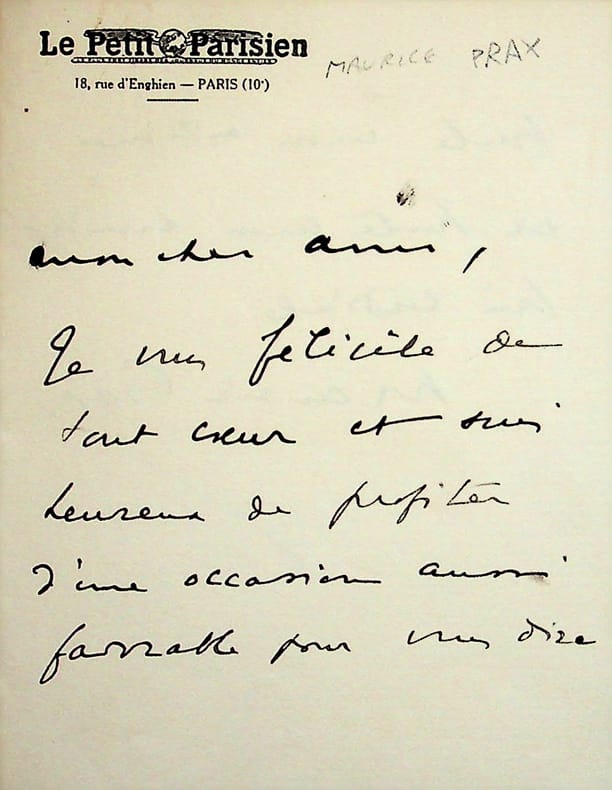 Le Petit Parisien
MAURICE PRAX
18, rue d'Enghien — PARIS (10e)
mon cher ami,
Je vous félicite de
tout cœur et suis
heureux de profiter
d'une occasion aussi
favorable pour vous dire